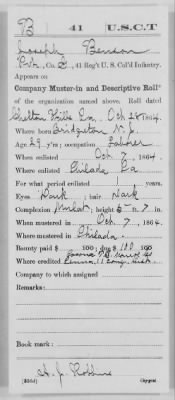 B 41 U.S.C.T
Joseph Benson
Pvt., Co. , 41 Reg't U. S. Col'd Infantry.
Appears on
Company Muster-in and Descriptive Roll*
of the organization named above. Roll dated
Chelton Hills Pa, Oct 28 1864.
Where born Bridgeton N. J.
Age 29 y'rs; occupation Laborer
When enlisted Oct 7, 1864.
Where enlisted Philada Pa
For what period enlisted 1 years.
Eyes Dark; hair Dark
Complexion; height 5 ft. 7 in.
When mustered in Oct 7, 1864.
Where mustered in Philada.
Bounty paid $ 100; due $ 100 100
Where credited
Company to which assigned
Remarks:
Book mark:
H. J. Robbins
(534) Copyist.